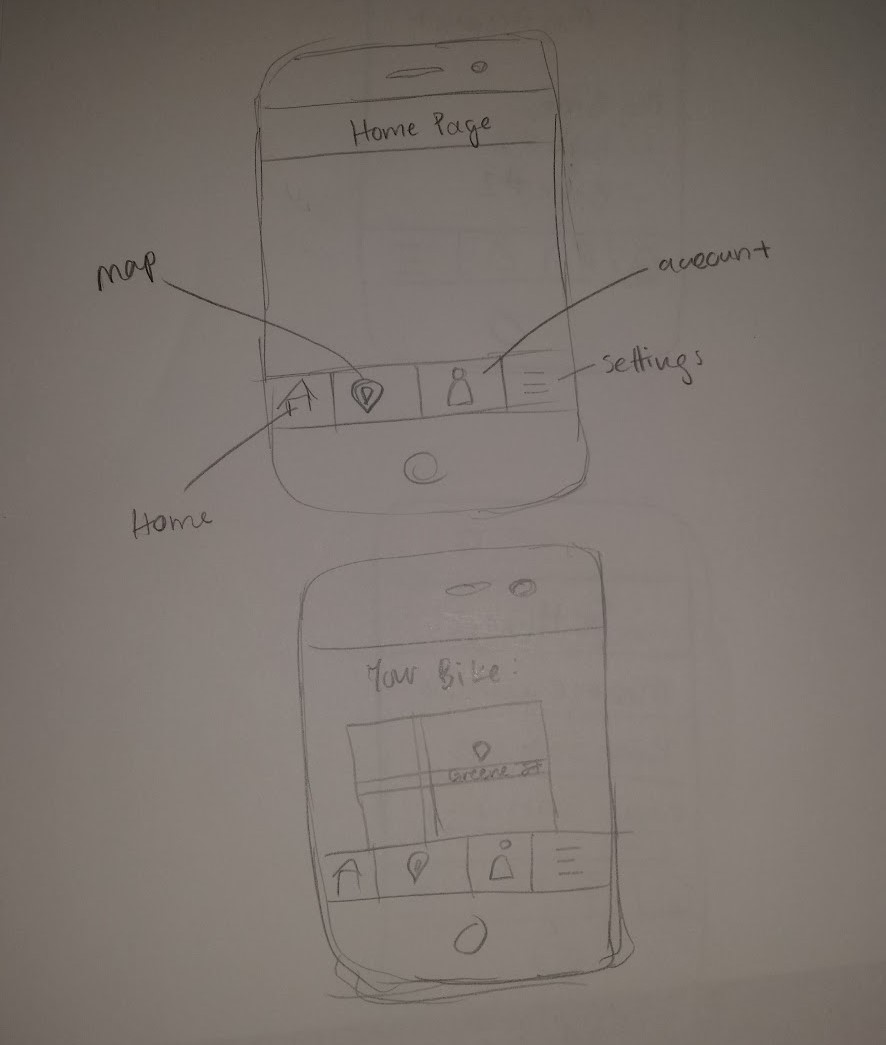 Home Page
map
account
settings
Home
Your Bike:
Greene St